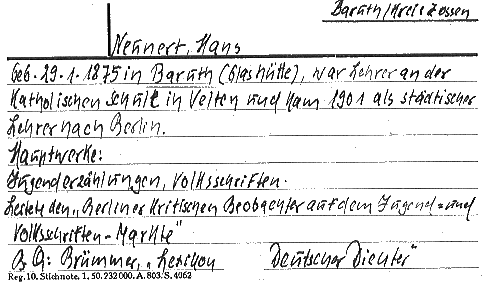 Baruth/Kreis Zossen
Neunert, Hans
Geb. 29.1.1875 in Baruth (Glashütte), war Lehrer an der
Katholischen Schule in Velten und kam 1901 als städtischer
Lehrer nach Berlin.
Hauptwerke:
Jugenderzählungen, Volksschriften.
Leitete den „Berliner Kritischen Beobachter auf dem Jugend- und
Volksschriften-Markte"
Brümmer, „Lexikon Deutscher Dichter"
Reg. 10. Stichnote. 1. 50. 232000. A. 803. S. 4062